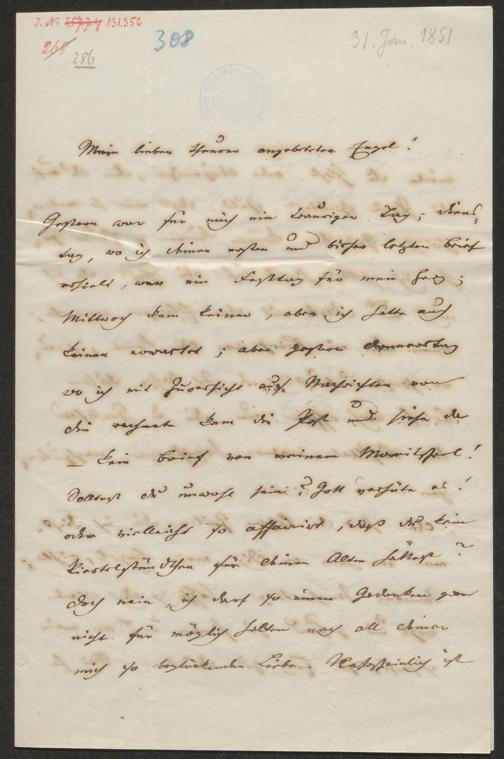 J. No 25774 131.352
268
286
308
31. Jan. 1851
Mein lieber theurer angebeteter Engel!
Gestern war für mich ein trauriger Tag; Diens-
tag, wo ich deinen ersten und bisher letzten Brief
erhielt, war ein Festtag für mein Herz;
Mittwoch kam keiner, aber ich hatte auch
keinen erwartet; aber gestern Donnerstag
wo ich mit Zuversicht auf Nachrichten von
dir rechnete kam die Post und siehe da
– kein Brief von meinem
Solltest du unwohl sein? Gott verhüte es!
oder vielleicht so affairirt, daß du kein
Viertelstündchen für deinen Alten hättest?
doch nein, ich darf so einen Gedanken gar
nicht für möglich halten nach all deiner
mich so beglückenden Liebe. Wahrscheinlich ist